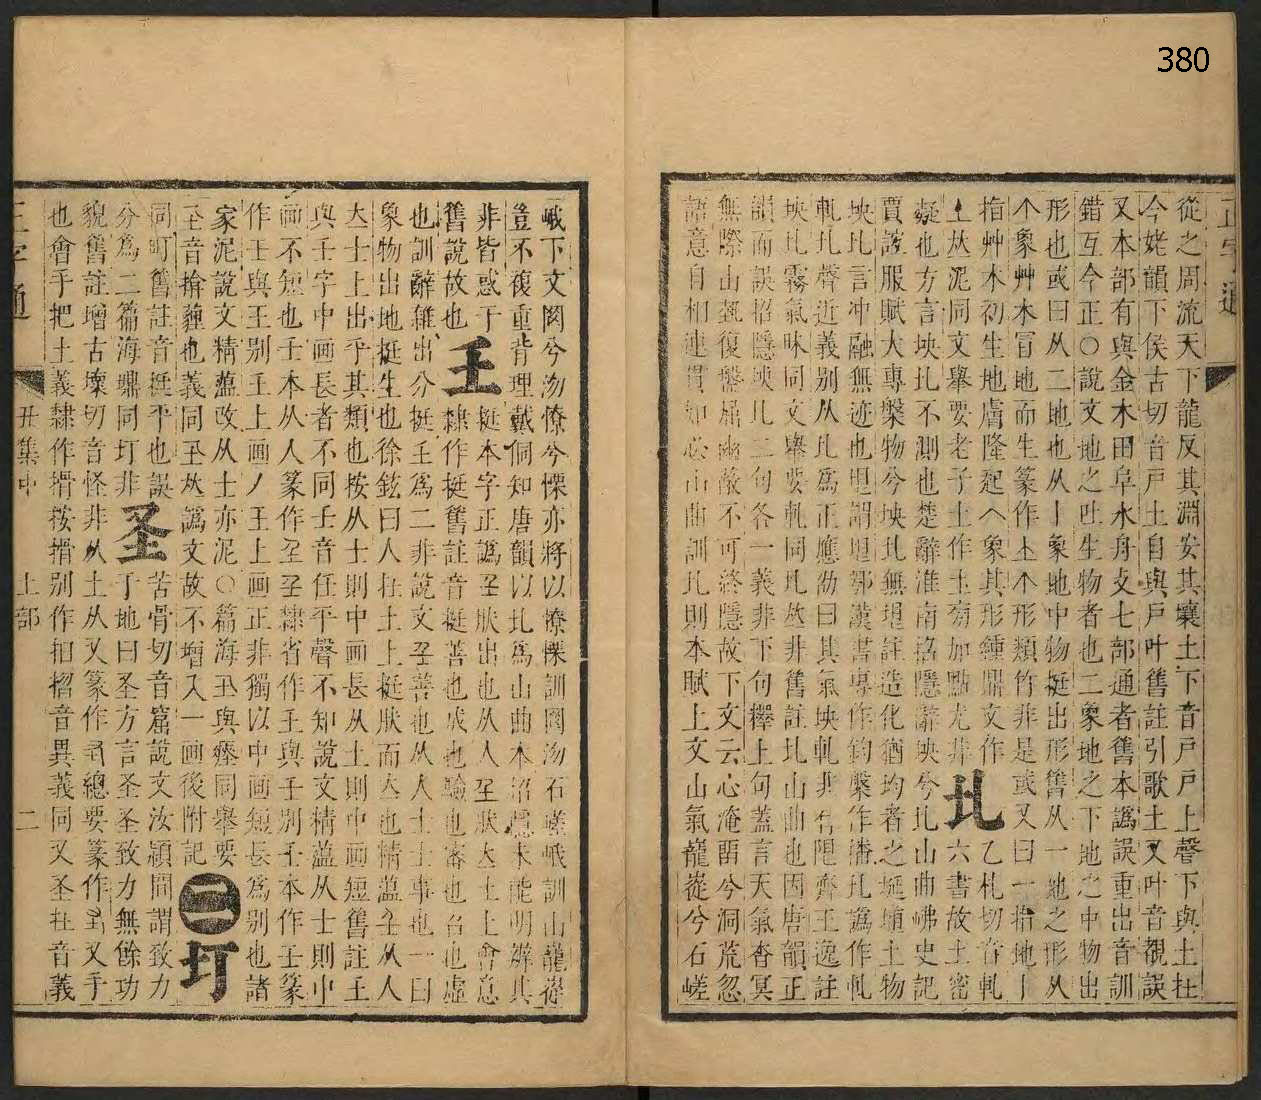 380
正字通
從之周流天下龍反其淵安其壤土下音戸戸上聲下與土杜
今姥韻下侯古切音戸土自與戸叶舊註引歌土又叶音覩誤
又本部有與金木田阜水舟攴七部通者舊本譌誤重出音訓
錯互今正○說文地之吐生物者也二象地之下地之中物出
形也或曰从二地也从丨象地中物挺出形舊从一地之形从
个象艸木冒地而生篆作土个形類竹非是或又曰一指地丨
指艸木初生地膚隆起𠆢象其形鍾鼎文作
圠
乙札切音軋
土𠀤泥同文舉要老子土作圡旁加點尤非
六書故土密
凝也方言坱圠不測也楚辭淮南招隱辭坱兮圠山曲岪史記
賈誼服賦大專槃物兮坱圠無垠註造化猶均者之埏埴土物
坱圠言冲融無迹也垠謂垠鄂漢書專作鈞槃作播圠譌作軋
軋圠聲近義别从圠爲正應劭曰其氣坱軋非有限齊王逸註
坱圠霧氣昧同文舉要軋同圠𠀤非舊註圠山曲也因唐韻正
韻而誤招隱坱圠二句各一義非下句釋上句蓋言天氣杳冥
無際山勢復盤屈幽蔽不可終隱故下文云心淹留兮洞荒忽
語意自相連貫如必山曲訓圠則本賦上文山氣巃嵸兮石嵯
峨下文罔兮沕憭兮慄亦將以憭慄訓罔沕石嵯峨訓山巃嵸
豈不複重背理戴侗知唐韻以圠爲山曲本沼隱未能明辨其
非皆惑于
𡈼
挺本字正譌𡈼肰出也从人𡈼肰𠀤土上會意
舊說故也
隸作挺舊註音挺善也成也驗也審也召也虛
也訓辭雜出分挺𡈼爲二非說文𡈼善也从人士士事也一曰
象物出地挺生也徐鉉曰人在土上挺肰而立也精薀𡈼从人
立士上出乎其類也按从士則中画長从土則中画短舊註王
與壬字中画長者不同壬音任平聲不知說文精薀从士則中
画不短也壬本从人篆作𡈼𡈼隸省作王與壬别壬本作壬篆
作王與王别王上画丿王上画正非獨以中画短長爲别也諸
家泥說文精薀改从士亦泥○篇海𡉚與瘞同舉要
𡉚音揜薶也義同𡉚𠀤譌文故不增入一画後附記
二
圢
同町舊註音挺平也誤
圣
苦骨切音窟說文汝潁間謂致力
分爲二篇海鼎同圢非
于地曰圣方言圣圣致力無餘功
貌舊註增古壞切音怪非从土从又篆作𡉄總要篆作𡉄又手
也會手把土義隸作搰按搰别作抇㨡音異義同又圣在音義
正字通
丑集中
土部
二